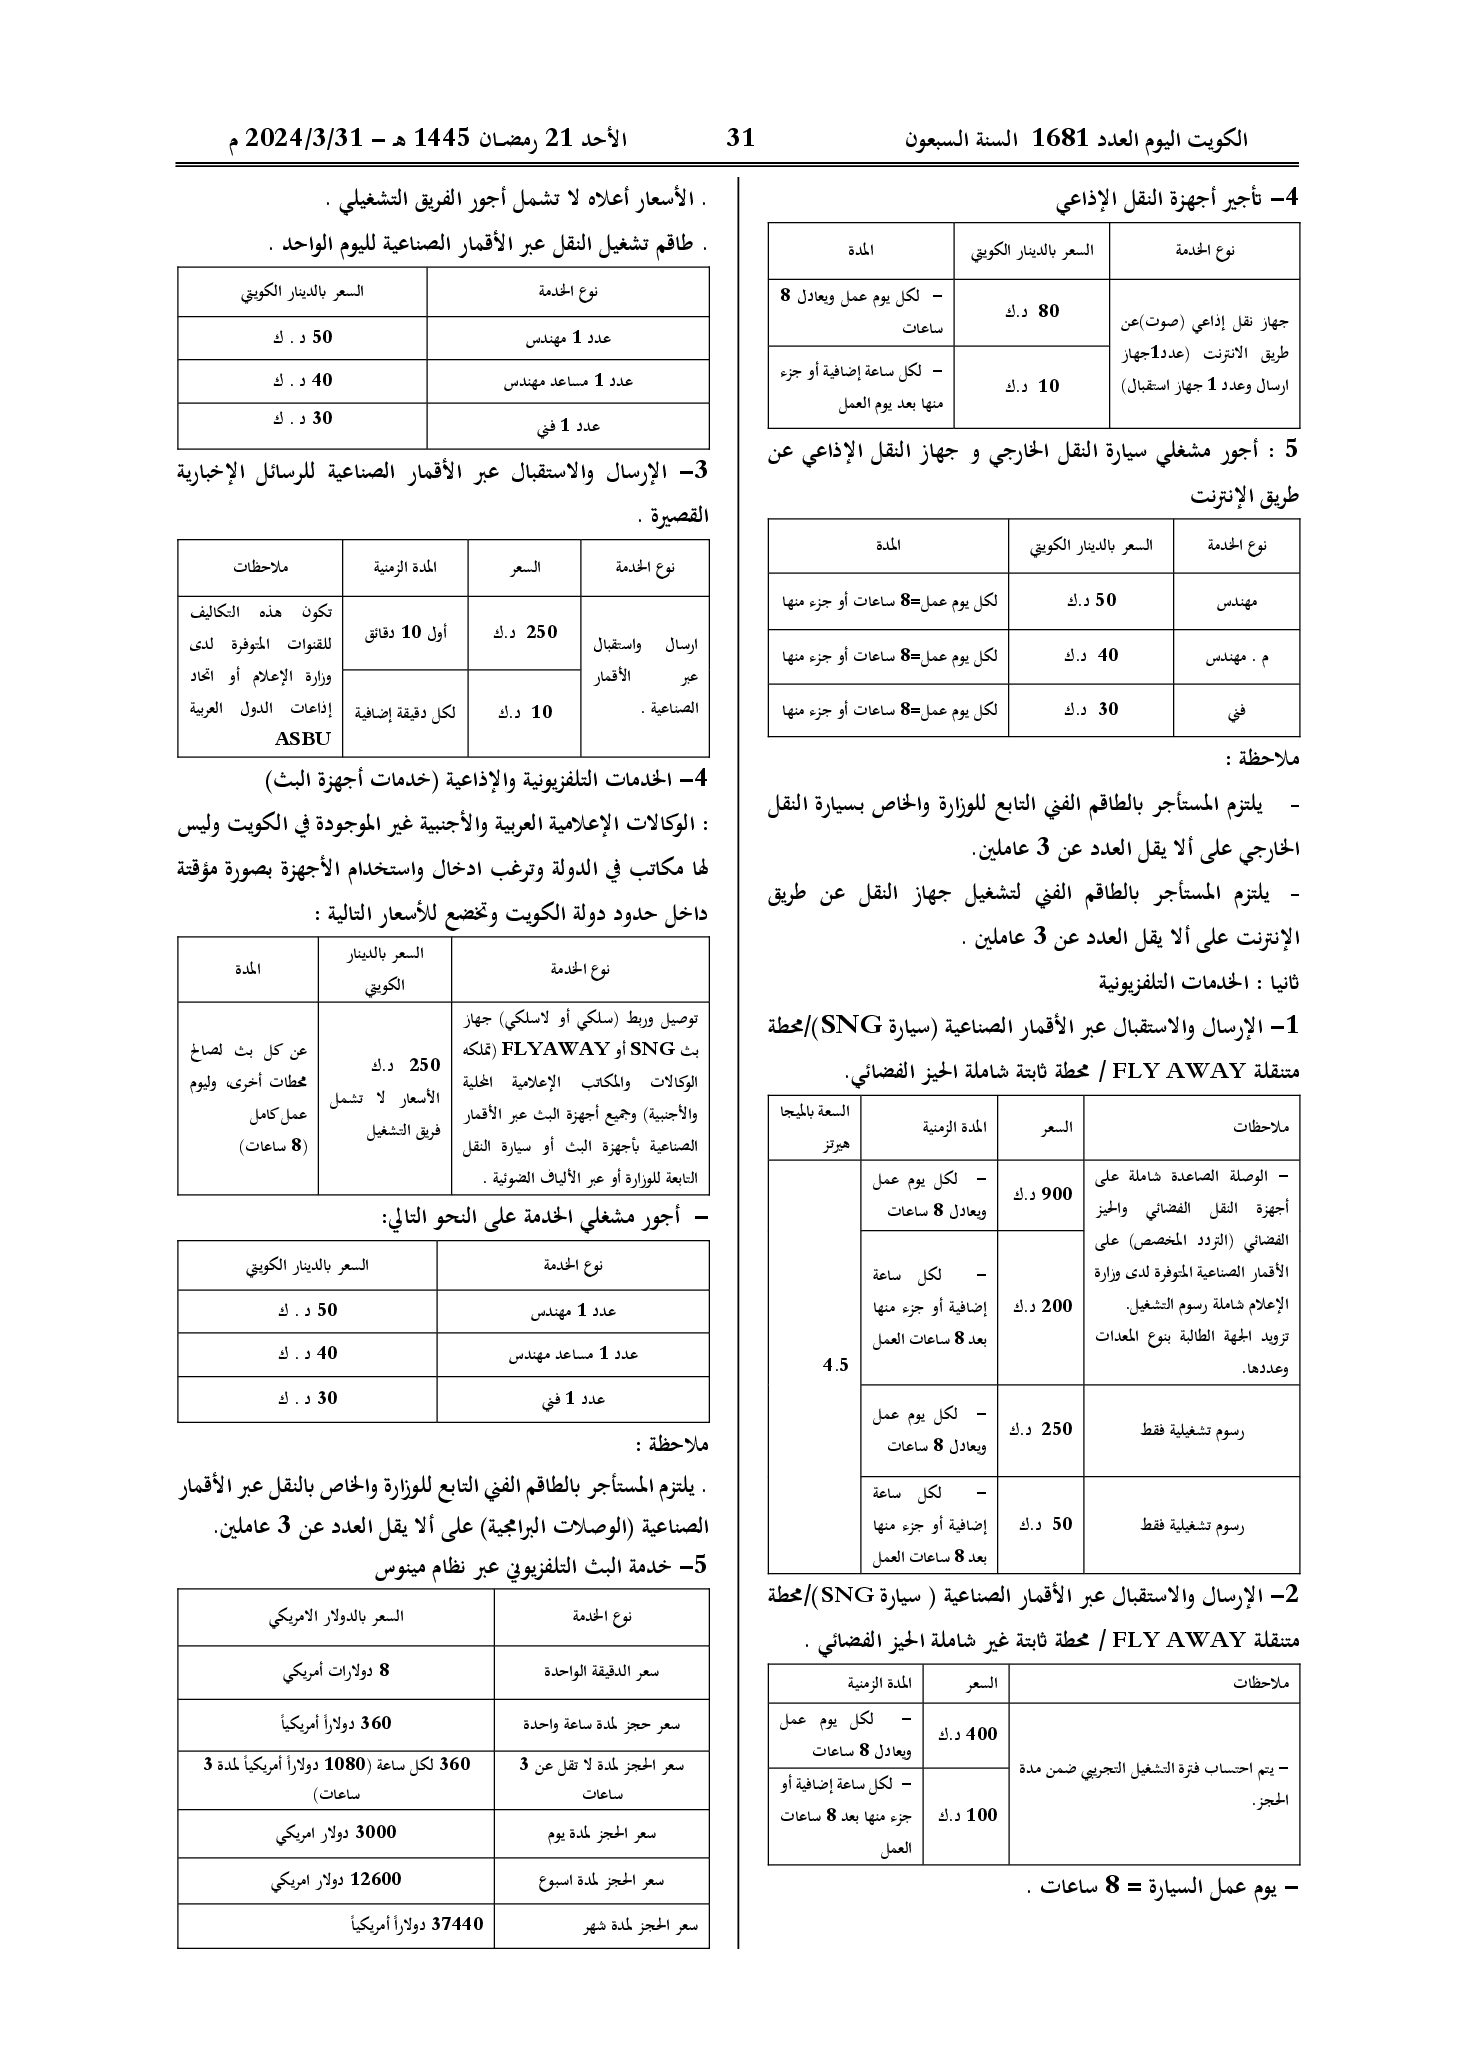 الكويت اليوم العدد 1681 السنة السبعون
31
الأحد 21 رمضان 1445 هـ – 2024/3/31 م
4– تأجير أجهزة النقل الإذاعي
نوع الخدمة
السعر بالدينار الكويتي
المدة
جهاز نقل إذاعي (صوت)عن
طريق الانترنت (عدد1جهاز
ارسال وعدد 1 جهاز استقبال)
80 د.ك
– لكل يوم عمل ويعادل 8
ساعات
10 د.ك
– لكل ساعة إضافية أو جزء
منها بعد يوم العمل
5 : أجور مشغلي سيارة النقل الخارجي و جهاز النقل الإذاعي عن
طريق الإنترنت
نوع الخدمة
السعر بالدينار الكويتي
المدة
مهندس
50 د.ك
لكل يوم عمل=8 ساعات أو جزء منها
م . مهندس
40 د.ك
لكل يوم عمل=8 ساعات أو جزء منها
فني
30 د.ك
لكل يوم عمل=8 ساعات أو جزء منها
ملاحظة :
- يلتزم المستأجر بالطاقم الفني التابع للوزارة والخاص بسيارة النقل
الخارجي على ألا يقل العدد عن 3 عاملين.
- يلتزم المستأجر بالطاقم الفني لتشغيل جهاز النقل عن طريق
الإنترنت على ألا يقل العدد عن 3 عاملين .
ثانيا : الخدمات التلفزيونية
1– الإرسال والاستقبال عبر الأقمار الصناعية (سيارة SNG)/محطة
متنقلة FLY AWAY / محطة ثابتة شاملة الحيز الفضائي.
ملاحظات
السعر
المدة الزمنية
السعة بالميجا
هيرتز
– الوصلة الصاعدة شاملة على
أجهزة النقل الفضائي والحيز
الفضائي (التردد المخصص) على
الأقمار الصناعية المتوفرة لدى وزارة
الإعلام شاملة رسوم التشغيل.
تزويد الجهة الطالبة بنوع المعدات
وعددها.
900 د.ك
– لكل يوم عمل
ويعادل 8 ساعات
200 د.ك
– لكل ساعة
إضافية أو جزء منها
بعد 8 ساعات العمل
4.5
رسوم تشغيلية فقط
250 د.ك
– لكل يوم عمل
ويعادل 8 ساعات
رسوم تشغيلية فقط
50 د.ك
– لكل ساعة
إضافية أو جزء منها
بعد 8 ساعات العمل
2– الإرسال والاستقبال عبر الأقمار الصناعية ( سيارة SNG)/محطة
متنقلة FLY AWAY / محطة ثابتة غير شاملة الحيز الفضائي .
ملاحظات
السعر
المدة الزمنية
– يتم احتساب فترة التشغيل التجريبي ضمن مدة
الحجز.
400 د.ك
– لكل يوم عمل
ويعادل 8 ساعات
100 د.ك
– لكل ساعة إضافية أو
جزء منها بعد 8 ساعات
العمل
– يوم عمل السيارة = 8 ساعات .
. الأسعار أعلاه لا تشمل أجور الفريق التشغيلي .
. طاقم تشغيل النقل عبر الأقمار الصناعية لليوم الواحد .
نوع الخدمة
السعر بالدينار الكويتي
عدد 1 مهندس
50 د . ك
عدد 1 مساعد مهندس
40 د . ك
عدد 1 فني
30 د . ك
3– الإرسال والاستقبال عبر الأقمار الصناعية للرسائل الإخبارية
القصيرة .
نوع الخدمة
السعر
المدة الزمنية
ملاحظات
ارسال واستقبال
عبر الأقمار
الصناعية .
250 د.ك
أول 10 دقائق
10 د.ك
لكل دقيقة إضافية
تكون هذه التكاليف
للقنوات المتوفرة لدى
وزارة الإعلام أو اتحاد
إذاعات الدول العربية
ASBU
4– الخدمات التلفزيونية والإذاعية (خدمات أجهزة البث)
: الوكالات الإعلامية العربية والأجنبية غير الموجودة في الكويت وليس
لها مكاتب في الدولة وترغب ادخال واستخدام الأجهزة بصورة مؤقتة
داخل حدود دولة الكويت وتخضع للأسعار التالية :
نوع الخدمة
السعر بالدينار
الكويتي
المدة
توصيل وربط (سلكي أو لاسلكي) جهاز
بث SNG أو FLYAWAY (تملكه
الوكالات والمكاتب الإعلامية المحلية
والأجنبية) وجميع أجهزة البث عبر الأقمار
الصناعية بأجهزة البث أو سيارة النقل
التابعة للوزارة أو عبر الألياف الضوئية .
250 د.ك
الأسعار لا تشمل
فريق التشغيل
عن كل بث لصالح
محطات أخرى، وليوم
عمل كامل
(8 ساعات)
– أجور مشغلي الخدمة على النحو التالي:
نوع الخدمة
السعر بالدينار الكويتي
عدد 1 مهندس
50 د . ك
عدد 1 مساعد مهندس
40 د . ك
عدد 1 فني
30 د . ك
ملاحظة :
. يلتزم المستأجر بالطاقم الفني التابع للوزارة والخاص بالنقل عبر الأقمار
الصناعية (الوصلات البرامجية) على ألا يقل العدد عن 3 عاملين.
5– خدمة البث التلفزيوني عبر نظام مينوس
نوع الخدمة
السعر بالدولار الامريكي
سعر الدقيقة الواحدة
8 دولارات أمريكي
سعر حجز لمدة ساعة واحدة
360 دولاراً أمريكياً
سعر الحجز لمدة لا تقل عن 3
ساعات
360 لكل ساعة (1080 دولاراً أمريكياً لمدة 3
ساعات)
سعر الحجز لمدة يوم
3000 دولار امريكي
سعر الحجز لمدة اسبوع
12600 دولار امريكي
سعر الحجز لمدة شهر
37440 دولاراً أمريكياً